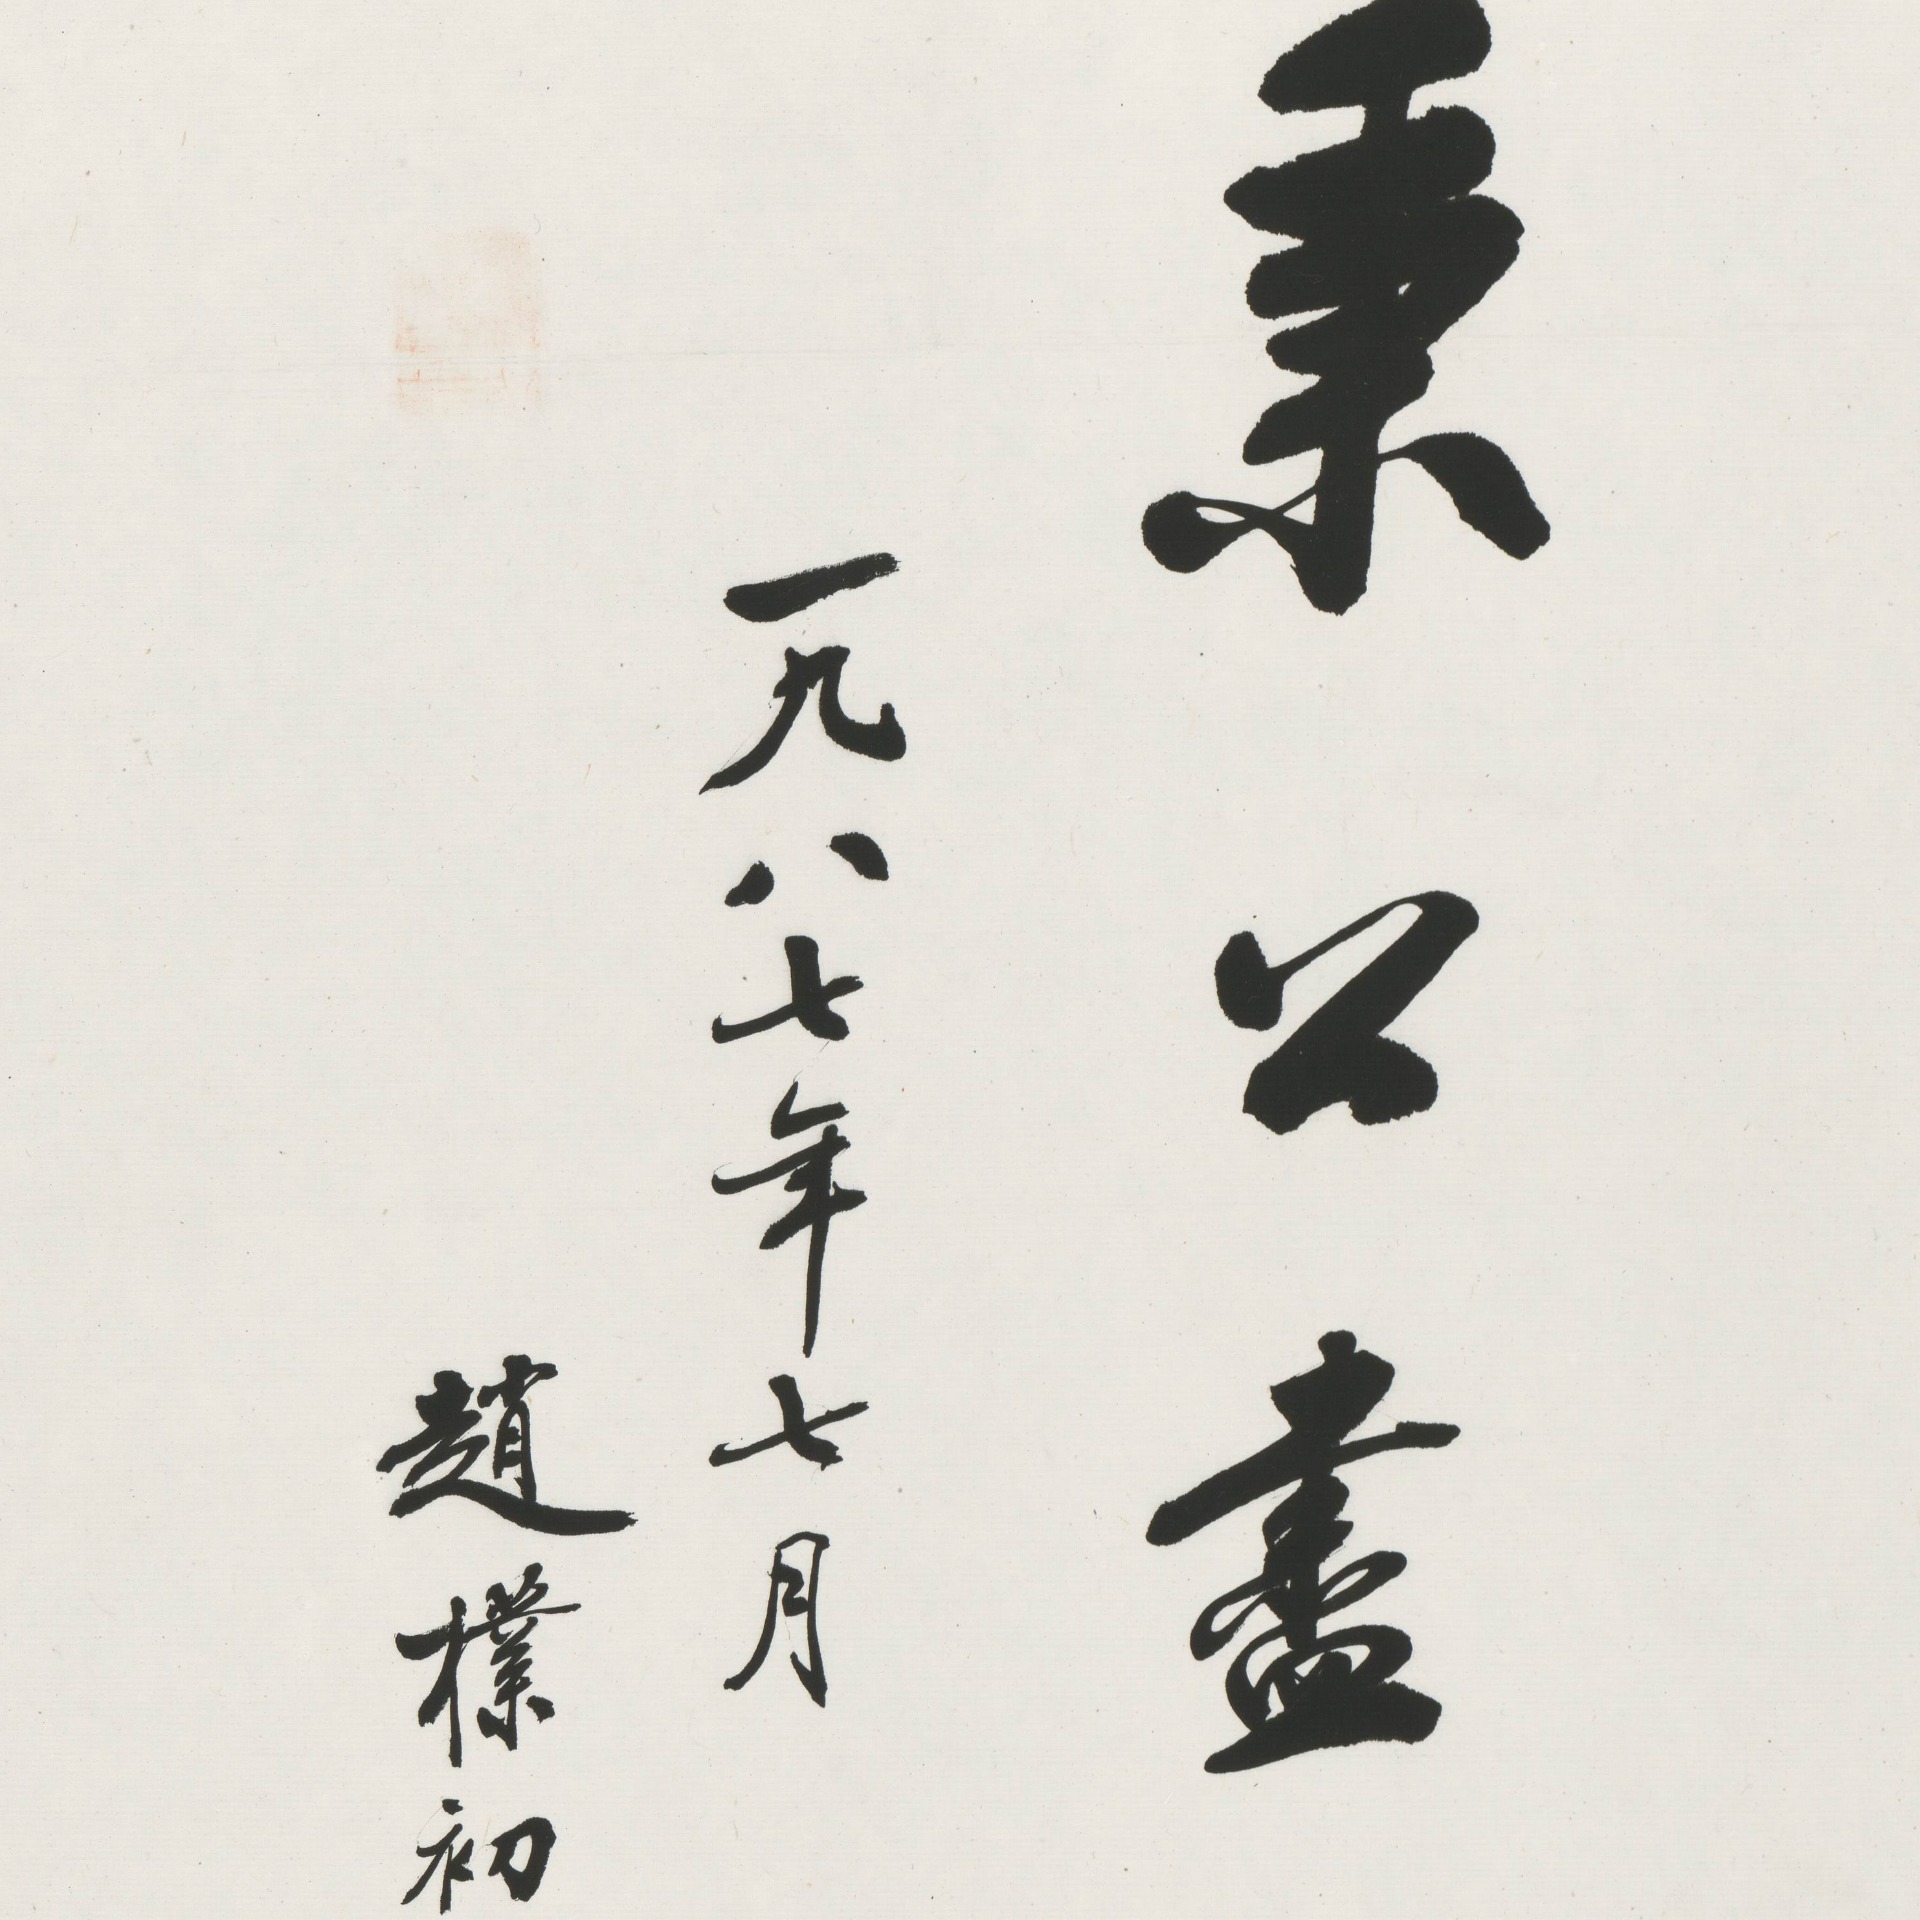 秉公盡
一九八七年七月
趙樸初